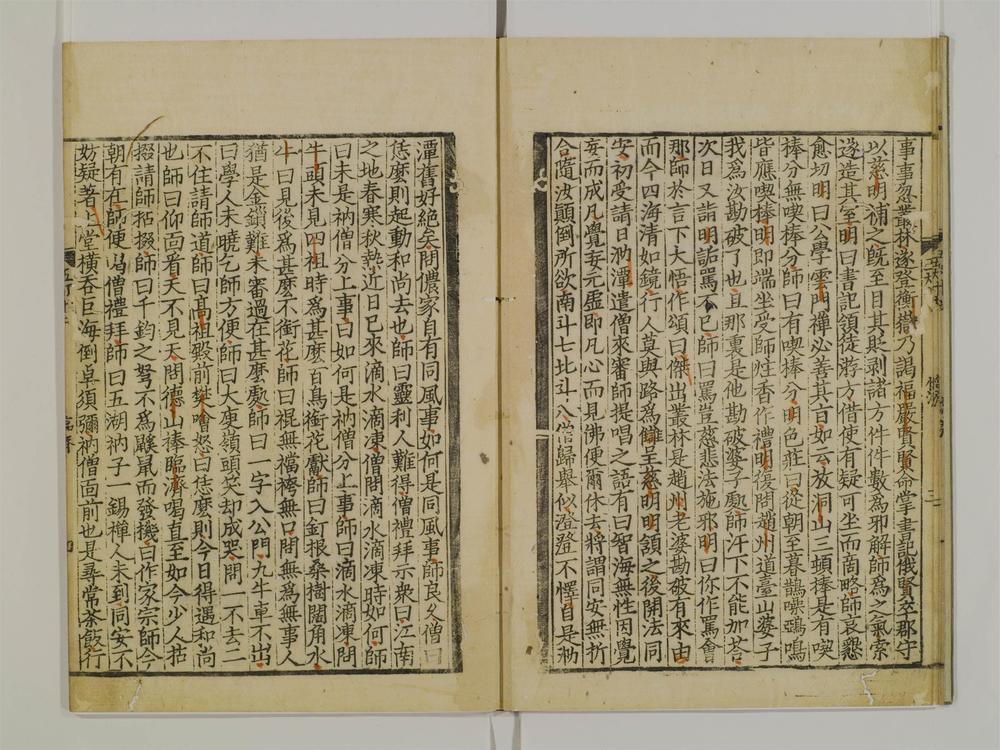 事事忽叢林遂登衡嶽乃謁福嚴賢賢命掌書記俄賢卒郡守
以慈明補之既至目其貶剥諸方件件數為邪解師為之氣索
遂造其室明曰書記領徒游方借使有疑可坐而商略師哀懇
愈切明曰公學雲門禪必善其旨如云放洞山三頓棒是有喫
棒分無喫棒分師曰有喫棒分明色莊曰從朝至暮鵲噪鵶鳴
皆應喫棒明即端坐受師炷香作禮明復問趙州道臺山婆子
我為汝勘破了也且那裏是他勘破婆子處師汗下不能加荅
次日又詣明詬罵不已師曰罵豈慈悲法施邪明曰你作罵會
那師於言下大悟作頌曰傑出叢林是趙州老婆勘破有來由
而今四海清如鏡行人莫與路為讎呈慈明明頷之後開法同
安初受請日泐潭遣僧來審師提唱之語有曰智海無性因覺
妄而成凡覺妄元虛即凡心而見佛便爾休去將謂同安無折
合隨汝顛倒所欲南斗七北斗八僧歸舉似澄澄不懌自是泐
潭舊好絕矣問儂家自有同風事如何是同風事師良久僧曰
恁麼則起動和尚去也師曰靈利人難得僧禮拜示衆曰江南
之地春寒秋熱近日已來滴水滴凍僧問滴水滴凍時如何師
曰未是衲僧分上事曰如何是衲僧分上事師曰滴水滴凍問
牛頭未見四祖時為甚麼百鳥銜花獻師曰釘根桑樹闊角水
牛曰見後為甚麼不銜花師曰裩無襠袴無口問無為無事人
猶是金鎖難未審過在甚麼處師曰一字入公門九牛車不出
曰學人未曉乞師方便師曰大庾嶺頭笑却成哭問一不去二
不住請師道師曰高祖殿前樊噲怒曰恁麼則今日得遇和尚
也師曰仰面看天不見天問德山棒臨濟喝直至如今少人拈
掇請師拈掇師曰千鈞之弩不為鼷鼠而發機曰作家宗師今
朝有在師便喝僧禮拜師曰五湖衲子一錫禪人未到同安不
妨疑著上堂橫吞巨海倒卓須彌衲僧面前也是尋常茶飯行
臨濟